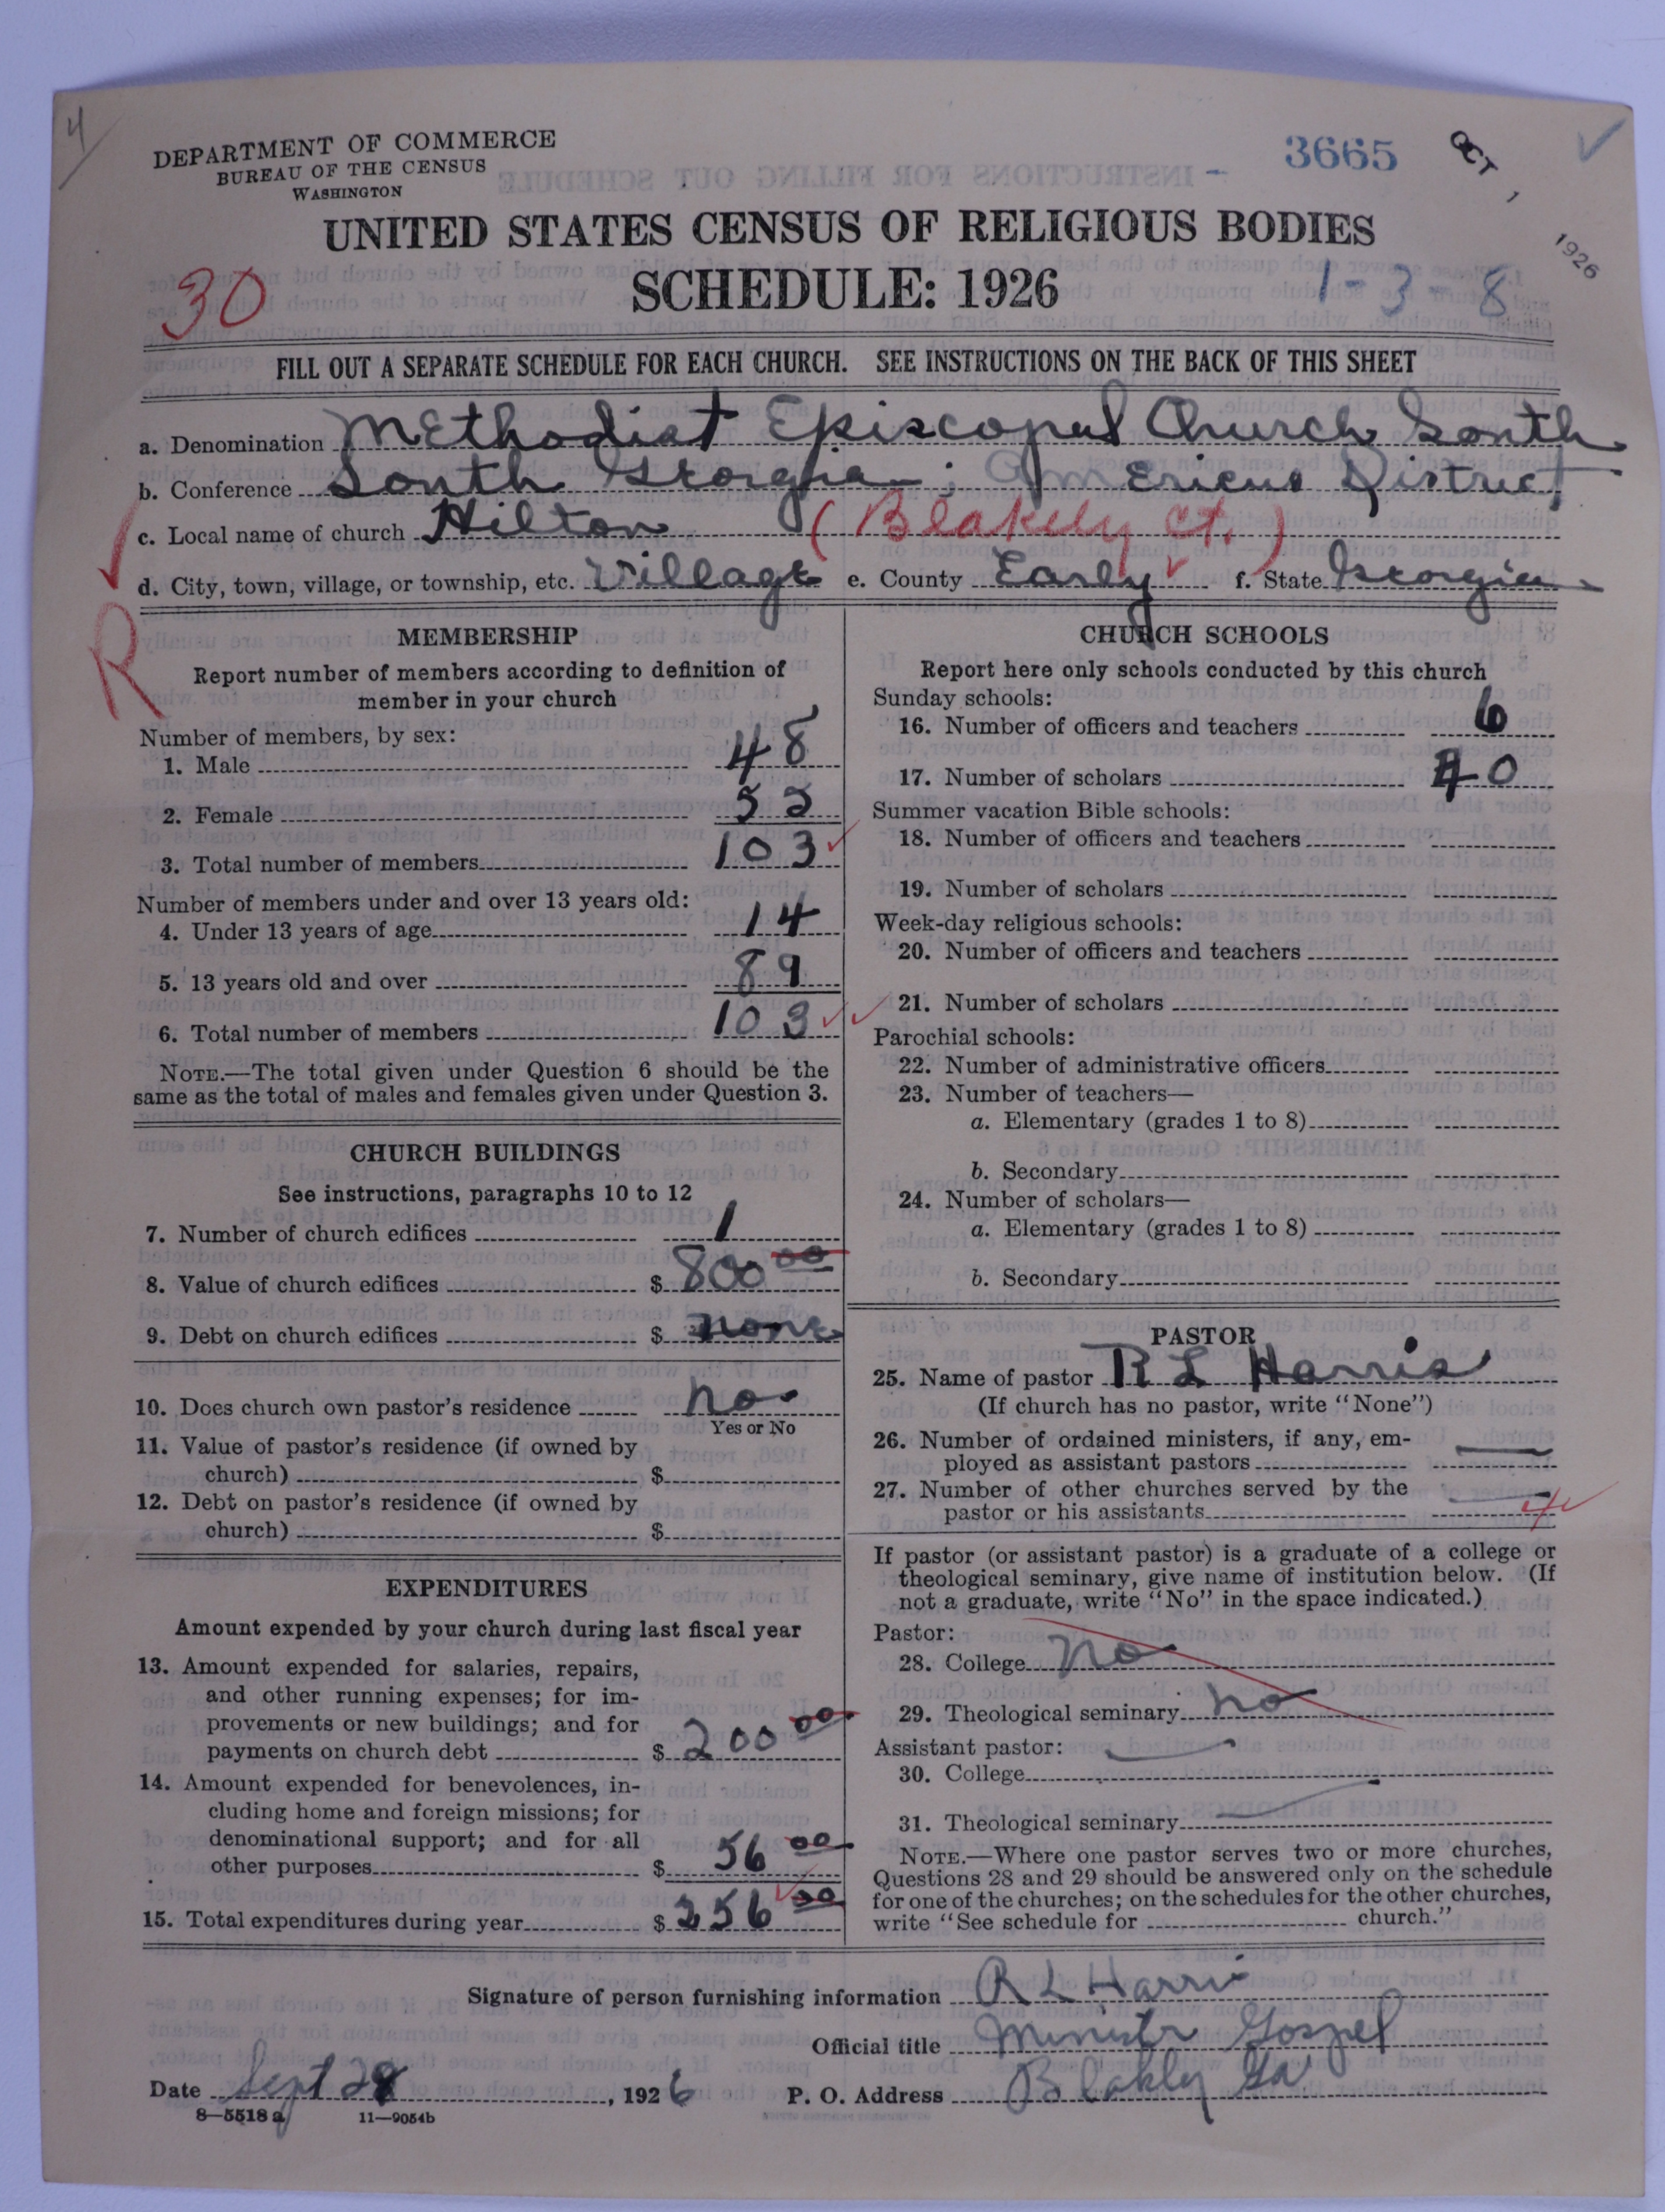 4
DEPARTMENT OF COMMERCE
BUREAU OF THE CENSUS
WASHINGTON
3665
OCT 1 1926
UNITED STATES CENSUS OF RELIGIOUS BODIES
30
SCHEDULE: 1926
1-3-8
FILL OUT A SEPARATE SCHEDULE FOR EACH CHURCH. SEE INSTRUCTIONS ON THE BACK OF THIS SHEET
a. Denomination Methodist Episcopal Church South
b. Conference South Georgia; Americus District
c. Local name of church Hilton (Blakely Ct.)
d. City, town, village, or township, etc. Village e. County Early f. State Georgia
R
MEMBERSHIP
Report number of members according to definition of
member in your church
Number of members, by sex:
1. Male 48
2. Female 55
3. Total number of members 103
Number of members under and over 13 years old:
4. Under 13 years of age 14
5. 13 years old and over 89
6. Total number of members 103
NOTE.—The total given under Question 6 should be the
same as the total of males and females given under Question 3.
CHURCH BUILDINGS
See instructions, paragraphs 10 to 12
7. Number of church edifices 1
8. Value of church edifices $ 800 00
9. Debt on church edifices $ none
10. Does church own pastor's residence no
Yes or No
11. Value of pastor's residence (if owned by
church) $
12. Debt on pastor's residence (if owned by
church) $
EXPENDITURES
Amount expended by your church during last fiscal year
13. Amount expended for salaries, repairs,
and other running expenses; for im-
provements or new buildings; and for
payments on church debt $ 200 00
14. Amount expended for benevolences, in-
cluding home and foreign missions; for
denominational support; and for all
other purposes $ 56 00
15. Total expenditures during year $ 256 00
CHURCH SCHOOLS
Report here only schools conducted by this church
Sunday schools:
16. Number of officers and teachers 6
17. Number of scholars 40
Summer vacation Bible schools:
18. Number of officers and teachers
19. Number of scholars
Week-day religious schools:
20. Number of officers and teachers
21. Number of scholars
Parochial schools:
22. Number of administrative officers
23. Number of teachers—
a. Elementary (grades 1 to 8)
b. Secondary
24. Number of scholars—
a. Elementary (grades 1 to 8)
b. Secondary
PASTOR
25. Name of pastor R L Harris
(If church has no pastor, write "None")
26. Number of ordained ministers, if any, em-
ployed as assistant pastors
27. Number of other churches served by the
pastor or his assistants 4
If pastor (or assistant pastor) is a graduate of a college or
theological seminary, give name of institution below. (If
not a graduate, write "No" in the space indicated.)
Pastor:
28. College no
29. Theological seminary no
Assistant pastor:
30. College
31. Theological seminary
NOTE.—Where one pastor serves two or more churches,
Questions 28 and 29 should be answered only on the schedule
for one of the churches; on the schedules for the other churches,
write "See schedule for church."
Signature of person furnishing information R L Harris
Official title Ministr Gospel
Date Sept 28, 1926 P. O. Address Blakly Ga
8—5518 a 11—9054b